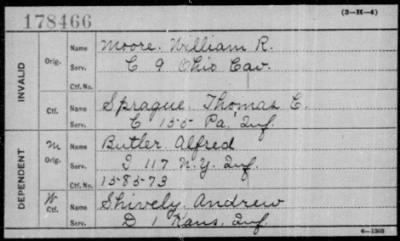 178466
(3-H-4)
INVALID
Orig.
Name Moore. William R.
Serv. C 9 Ohio Cav.
Ctf. No.
Ctf.
Name Sprague. Thomas E.
Serv. C 155 Pa. Inf.
DEPENDENT
M
Orig.
Name Butler. Alfred
Serv. I 117 N.Y. Inf.
Ctf. No. 158573
W
Ctf.
Name Shively. Andrew
Serv. D 1 Kans. Inf.